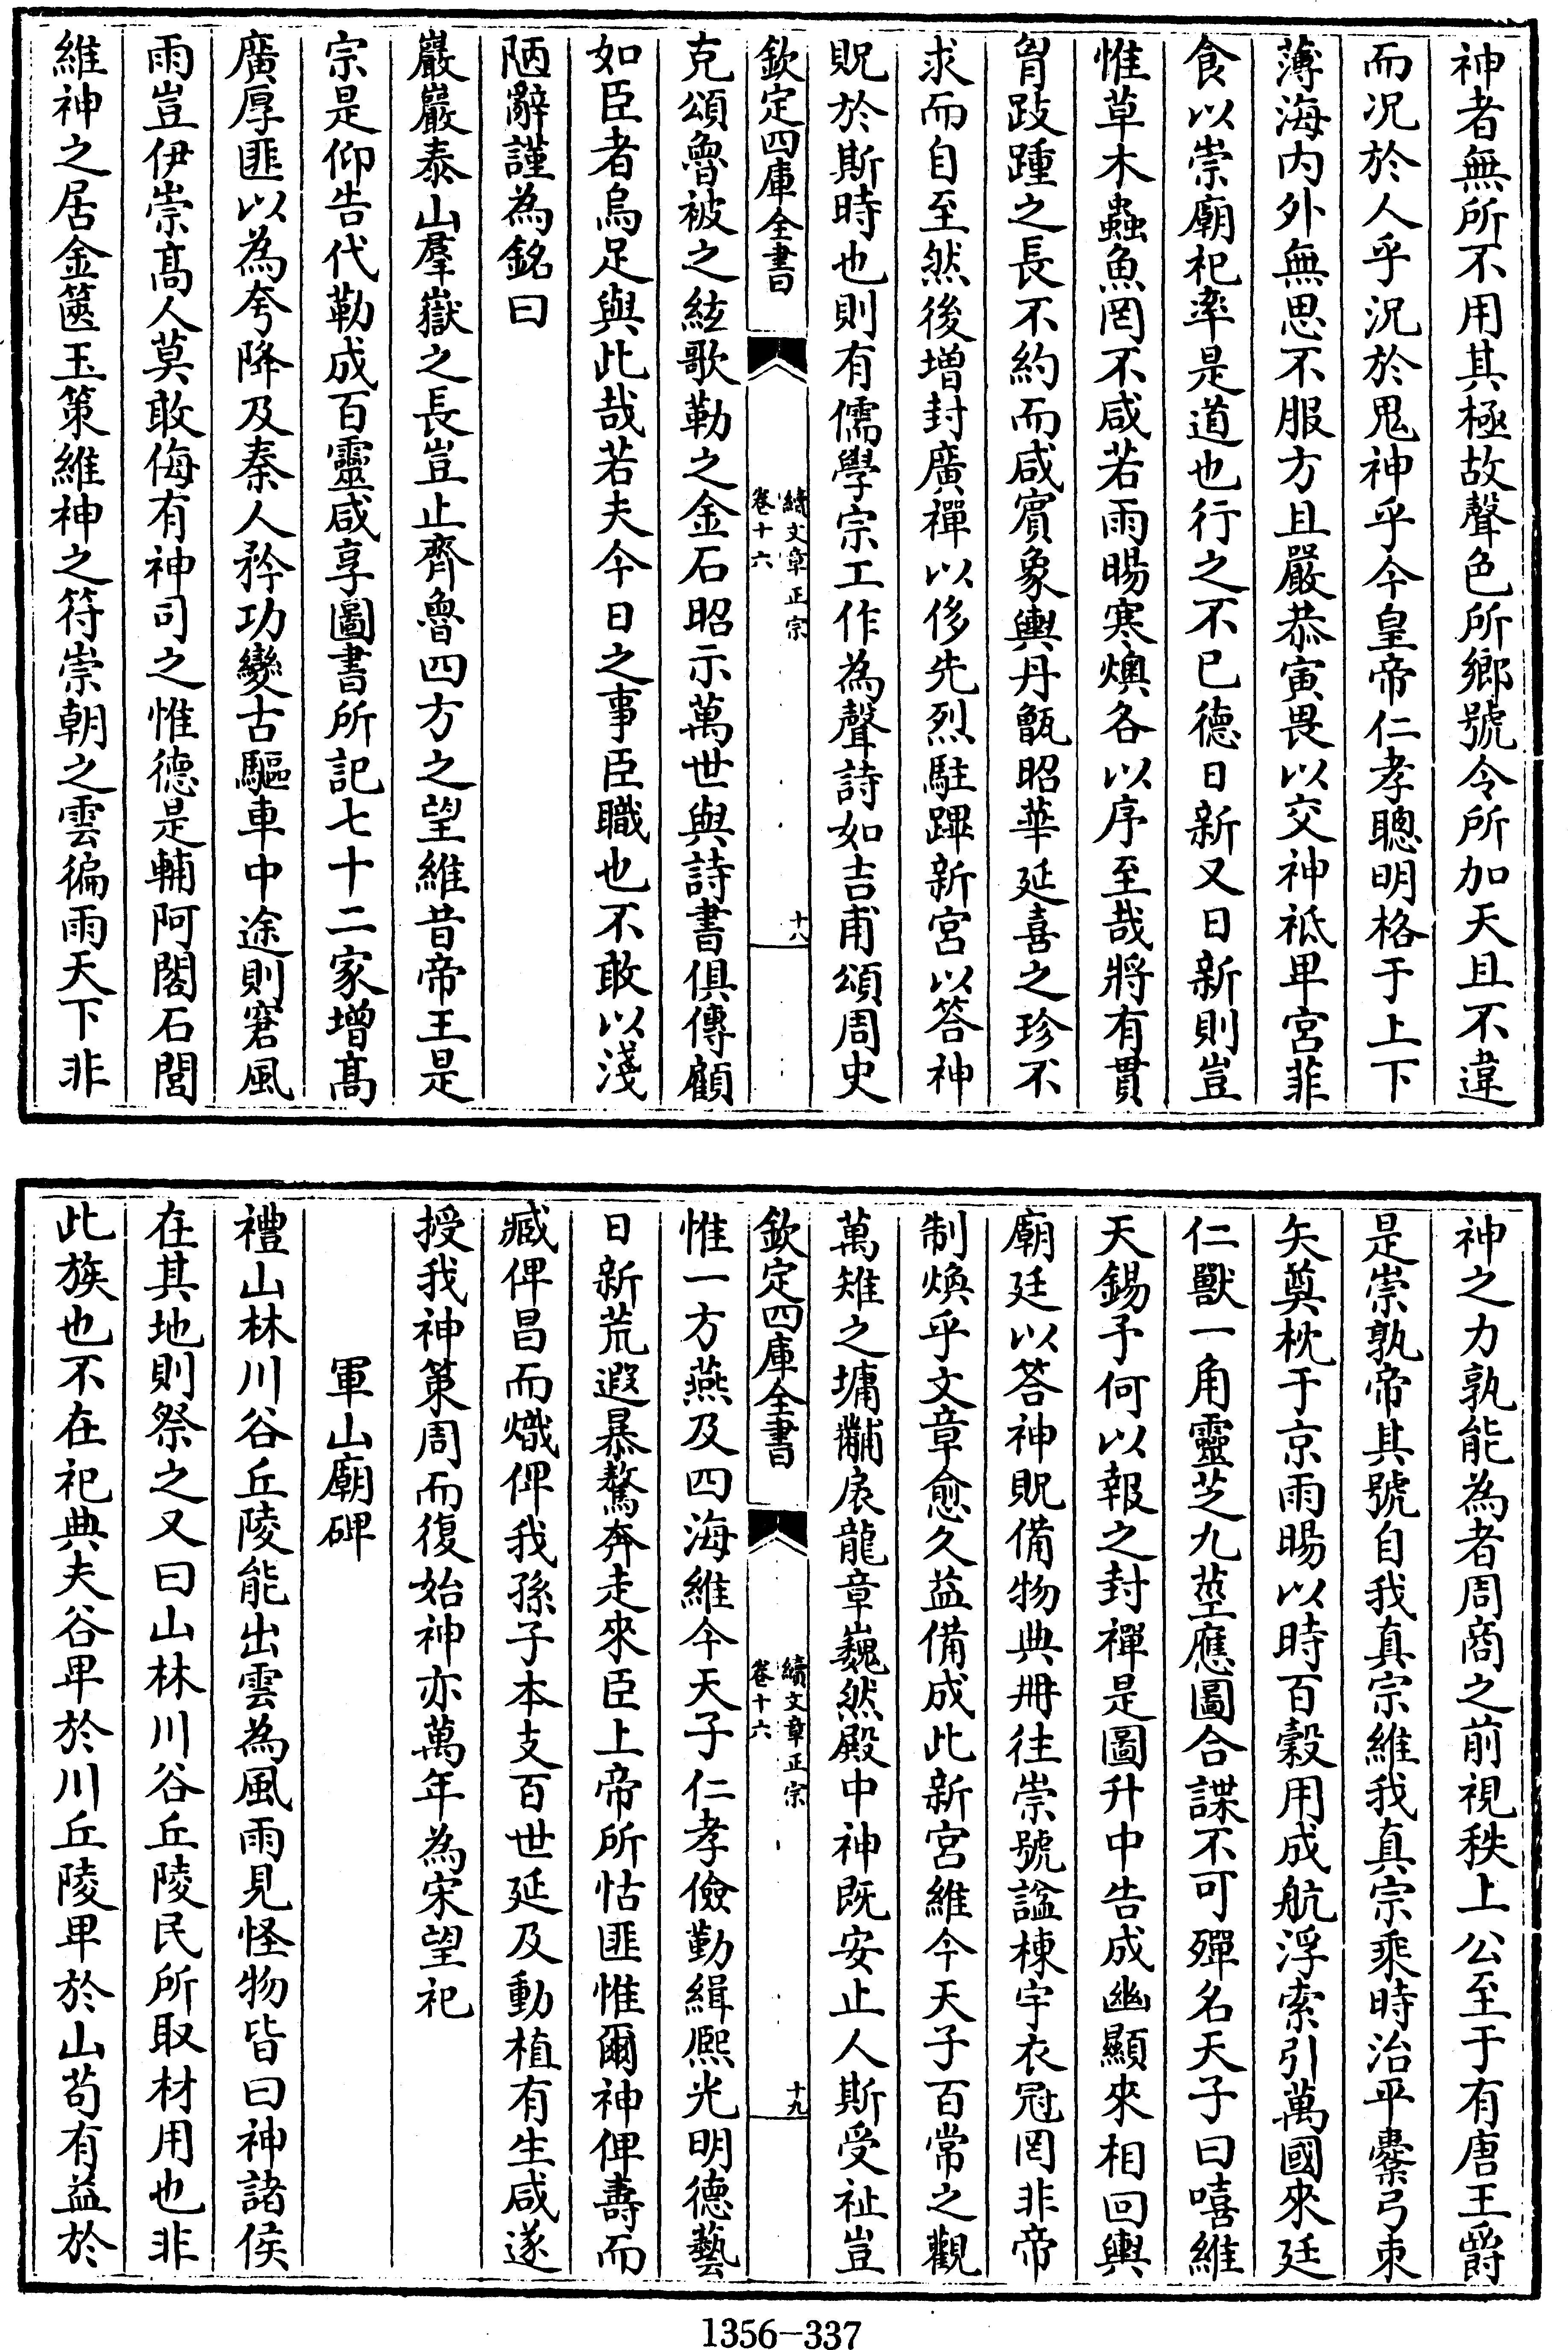 神者無所不用其極故聲色所鄉號令所加天且不違
而况於人乎況於鬼神乎今皇帝仁孝聰明格于上下
薄海内外無思不服方且嚴恭寅畏以交神祗卑宮菲
食以崇廟祀率是道也行之不已德日新又日新則豈
惟草木蟲魚罔不咸若雨暘寒燠各以序至哉將有貫
胷跂踵之長不約而咸賓象輿丹甑昭華延喜之珍不
求而自至然後增封廣禪以侈先烈駐蹕新宮以答神
貺於斯時也則有儒學宗工作為聲詩如吉甫頌周史
欽定四庫全書
續文章正宗
卷十六
十八
克頌魯被之絃歌勒之金石昭示萬世與詩書俱傳顧
如臣者烏足與此哉若夫今日之事臣職也不敢以淺
陋辭謹為銘曰
巖巖泰山羣嶽之長豈止齊魯四方之望維昔帝王是
宗是仰告代勒成百靈咸享圖書所記七十二家增髙
廣厚匪以為夸降及秦人矜功變古驅車中途則窘風
雨豈伊崇髙人莫敢侮有神司之惟德是輔阿閣石閭
維神之居金篋玉策維神之符崇朝之雲徧雨天下非
神之力孰能為者周商之前視秩上公至于有唐王爵
是崇孰帝其號自我真宗維我真宗乘時治平櫜弓束
矢奠枕于京雨暘以時百榖用成航浮索引萬國來廷
仁獸一角靈芝九莖應圖合諜不可殫名天子曰嘻維
天錫予何以報之封禪是圖升中告成幽顯來相回輿
廟廷以答神貺備物典冊徃崇號諡棟宇衣冠罔非帝
制煥乎文章愈久益備成此新宮維今天子百常之觀
萬雉之墉黼扆龍章巍然殿中神既安止人斯受祉豈
欽定四庫全書
續文章正宗
卷十六
十九
惟一方燕及四海維今天子仁孝儉勤緝熈光明德藝
日新荒遐暴驁奔走來臣上帝所怙匪惟爾神俾壽而
臧俾昌而熾俾我孫子本支百世延及動植有生咸遂
授我神策周而復始神亦萬年為宋望祀
軍山廟碑
禮山林川谷丘陵能出雲為風雨見怪物皆曰神諸侯
在其地則祭之又曰山林川谷丘陵民所取材用也非
此族也不在祀典夫谷卑於川丘陵卑於山苟有益於
1356-337